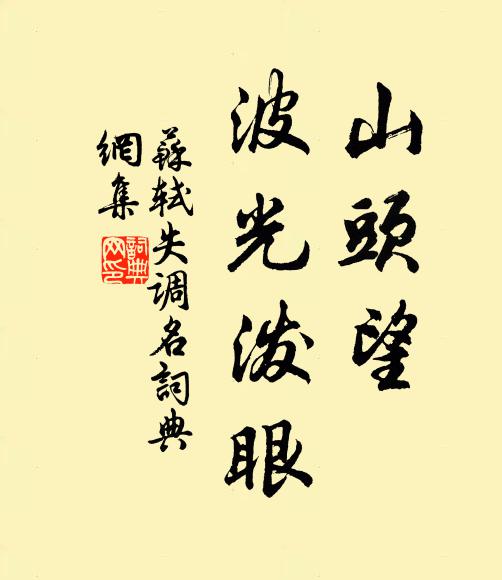 山頭望
波光泼眼
蘇軾失调名詞典
網集
詞典网印